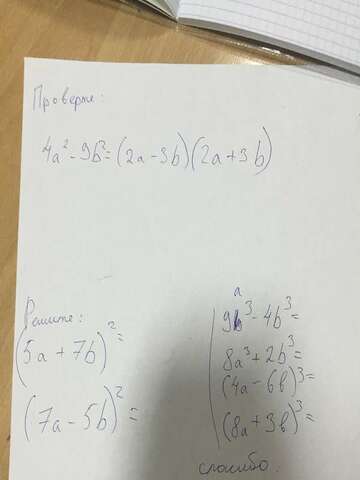 Проверьте:
4a² - 9b² = (2a - 3b)(2a + 3b)
Решите:
(5a + 7b)² =
(7a - 5b)² =
a
9b³ - 4b³ =
8a³ + 2b³ =
(4a - 6b)³ =
(8a + 3b)³ =
спасибо.